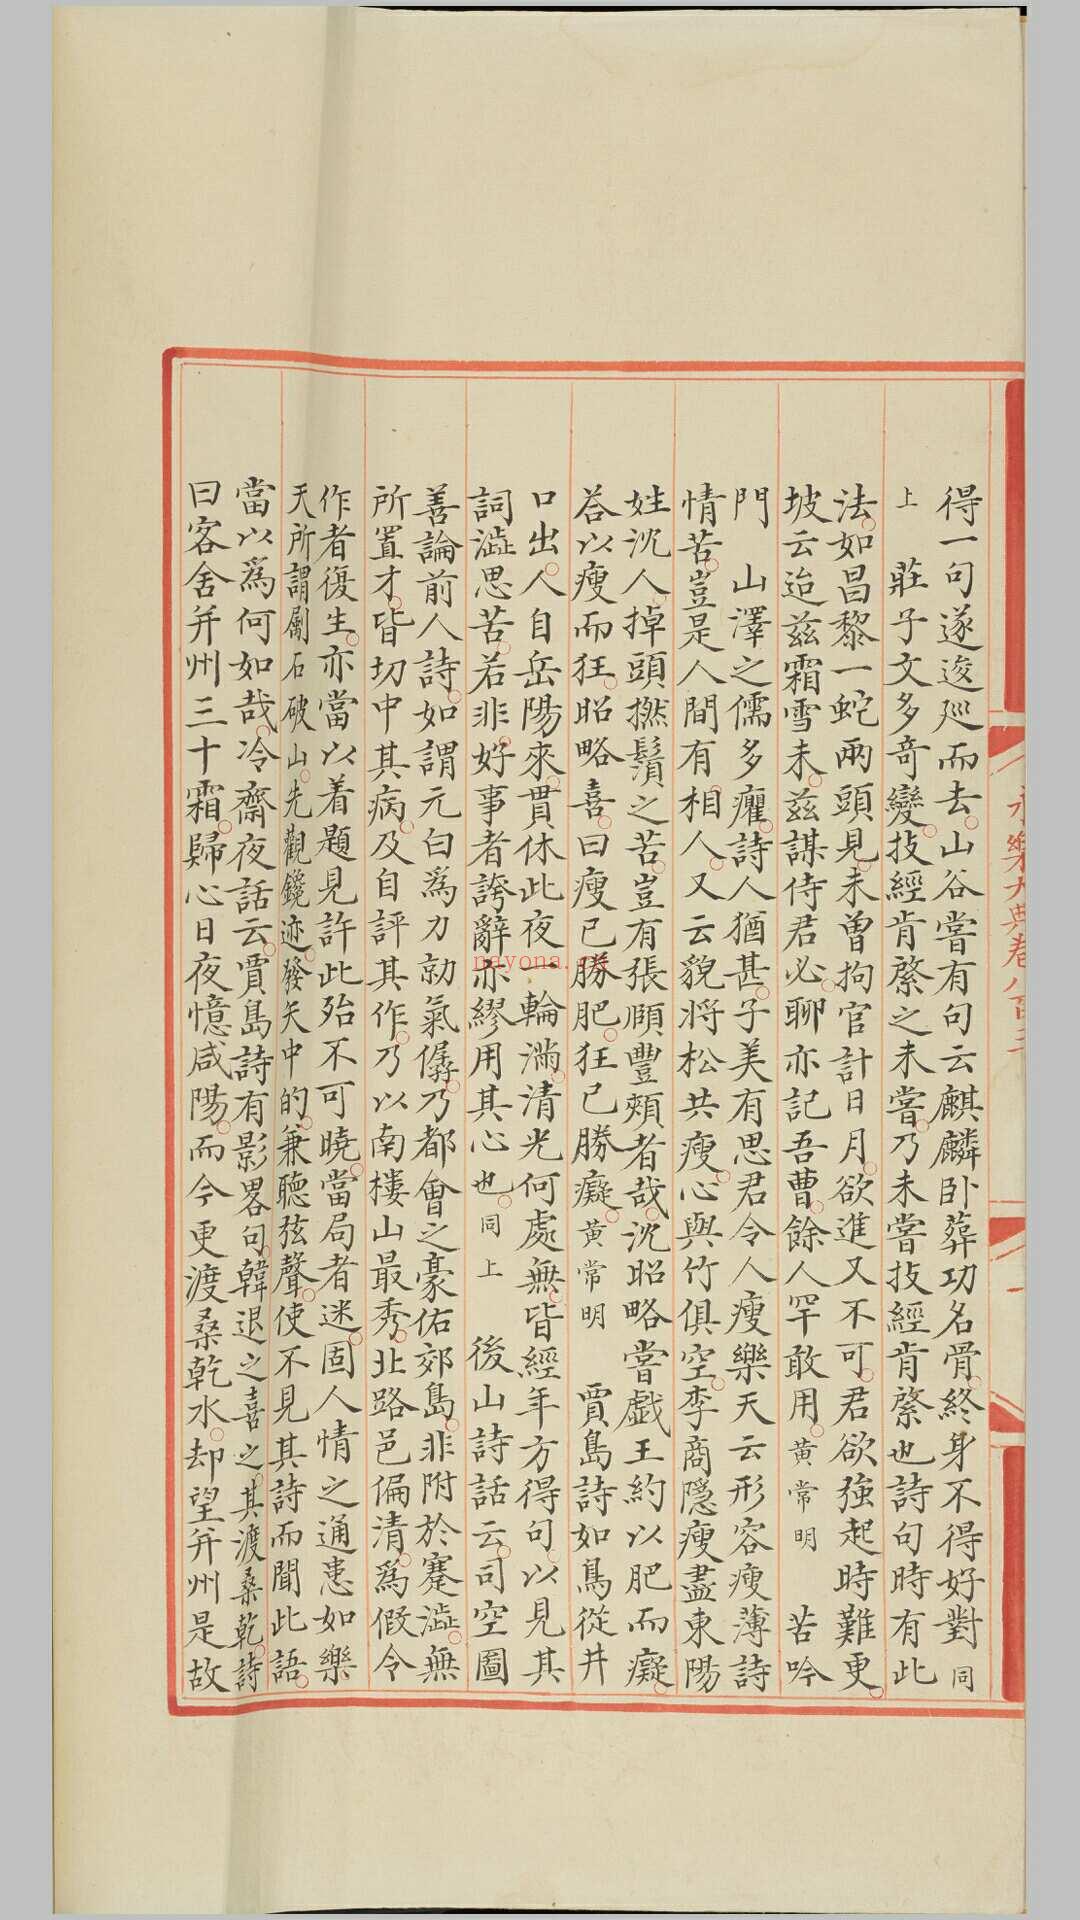 永樂大典卷八百三
得一句遂逡巡而去山谷嘗有句云麒麟卧葬功名骨終身不得好對同
上 莊子文多奇變技經肯綮之未嘗乃未嘗技經肯綮也詩句時有此
法如昌黎一蛇兩頭見未曾拘官計日月欲進又不可君欲強起時難更
坡云迨兹霜雪未兹謀待君必聊亦記吾曹餘人罕敢用黄常明 苦吟
門 山澤之儒多癯詩人猶甚子美有思君令人瘦樂天云形容瘦薄詩
情苦豈是人間有相人又云貌將松共瘦心與竹俱空李商隱瘦盡東陽
姓沈人掉頭撚鬚之苦豈有張頤豐頰者哉沈昭略嘗戯王約以肥而癡
荅以瘦而狂昭略喜曰瘦已勝肥狂已勝癡黄常明 賈島詩如鳥從井
口出人自岳陽來貫休此夜一輪滿清光何處無皆經年方得句以見其
詞澁思苦若非好事者誇辭亦繆用其心也同上 後山詩話云司空圖
善論前人詩如謂元白爲力勍氣孱乃都會之豪佑郊島非附於蹇澁無
所置才皆切中其病及自評其作乃以南樓山最秀北路邑偏清爲假令
作者復生亦當以着題見許此殆不可曉當局者迷固人情之通患如樂
天所謂劚石破山先觀鑱迹發矢中的兼聴弦聲使不見其詩而聞此語
當以爲何如哉冷齋夜話云賈島詩有影畧句韓退之喜之其渡桑乾詩
曰客舍并州三十霜歸心日夜憶咸陽而今更渡桑乾水却望并州是故
nayona.cn